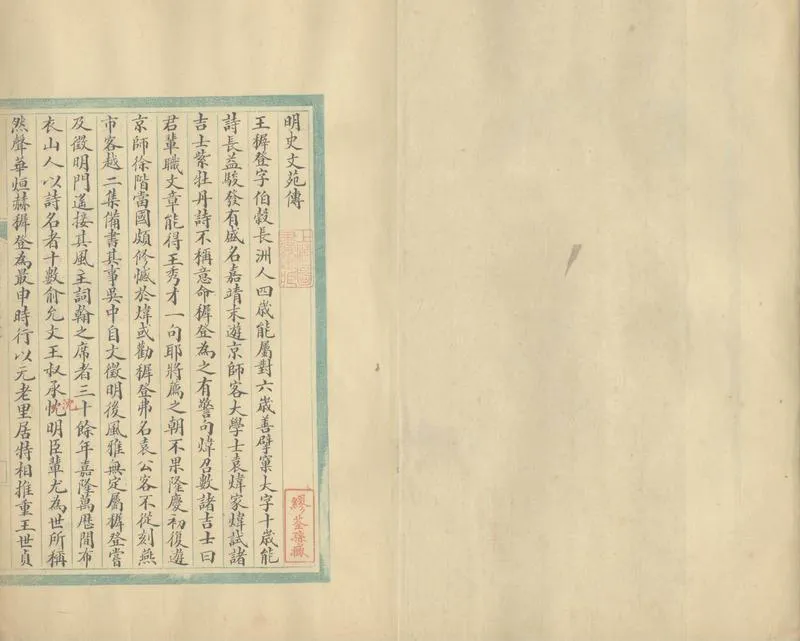 明史文苑傳
王穉登字伯穀長洲人四歳能屬對六歳善擘窠大字十歳能
詩長益駿發有盛名嘉靖末遊京師客大學士袁煒家煒試諸
吉士紫牡丹詩不稱意命穉登為之有警句煒召數諸吉士曰
君輩職文章能得王秀才一句耶將薦之朝不果隆慶初復遊
京師徐階當國頗修憾於煒或勸穉登弗名袁公客不從刻燕
市客越二集備書其事吳中自文徵明後風雅無定屬穉登嘗
及徵明門遙接其風主詞翰之席者三十餘年嘉隆萬歴間布
衣山人以詩名者十數俞允文王叔承忱明臣輩尤為世所稱
沈
然聲華烜赫穉登為最申時行以元老里居特相推重王世貞
繆荃孫藏